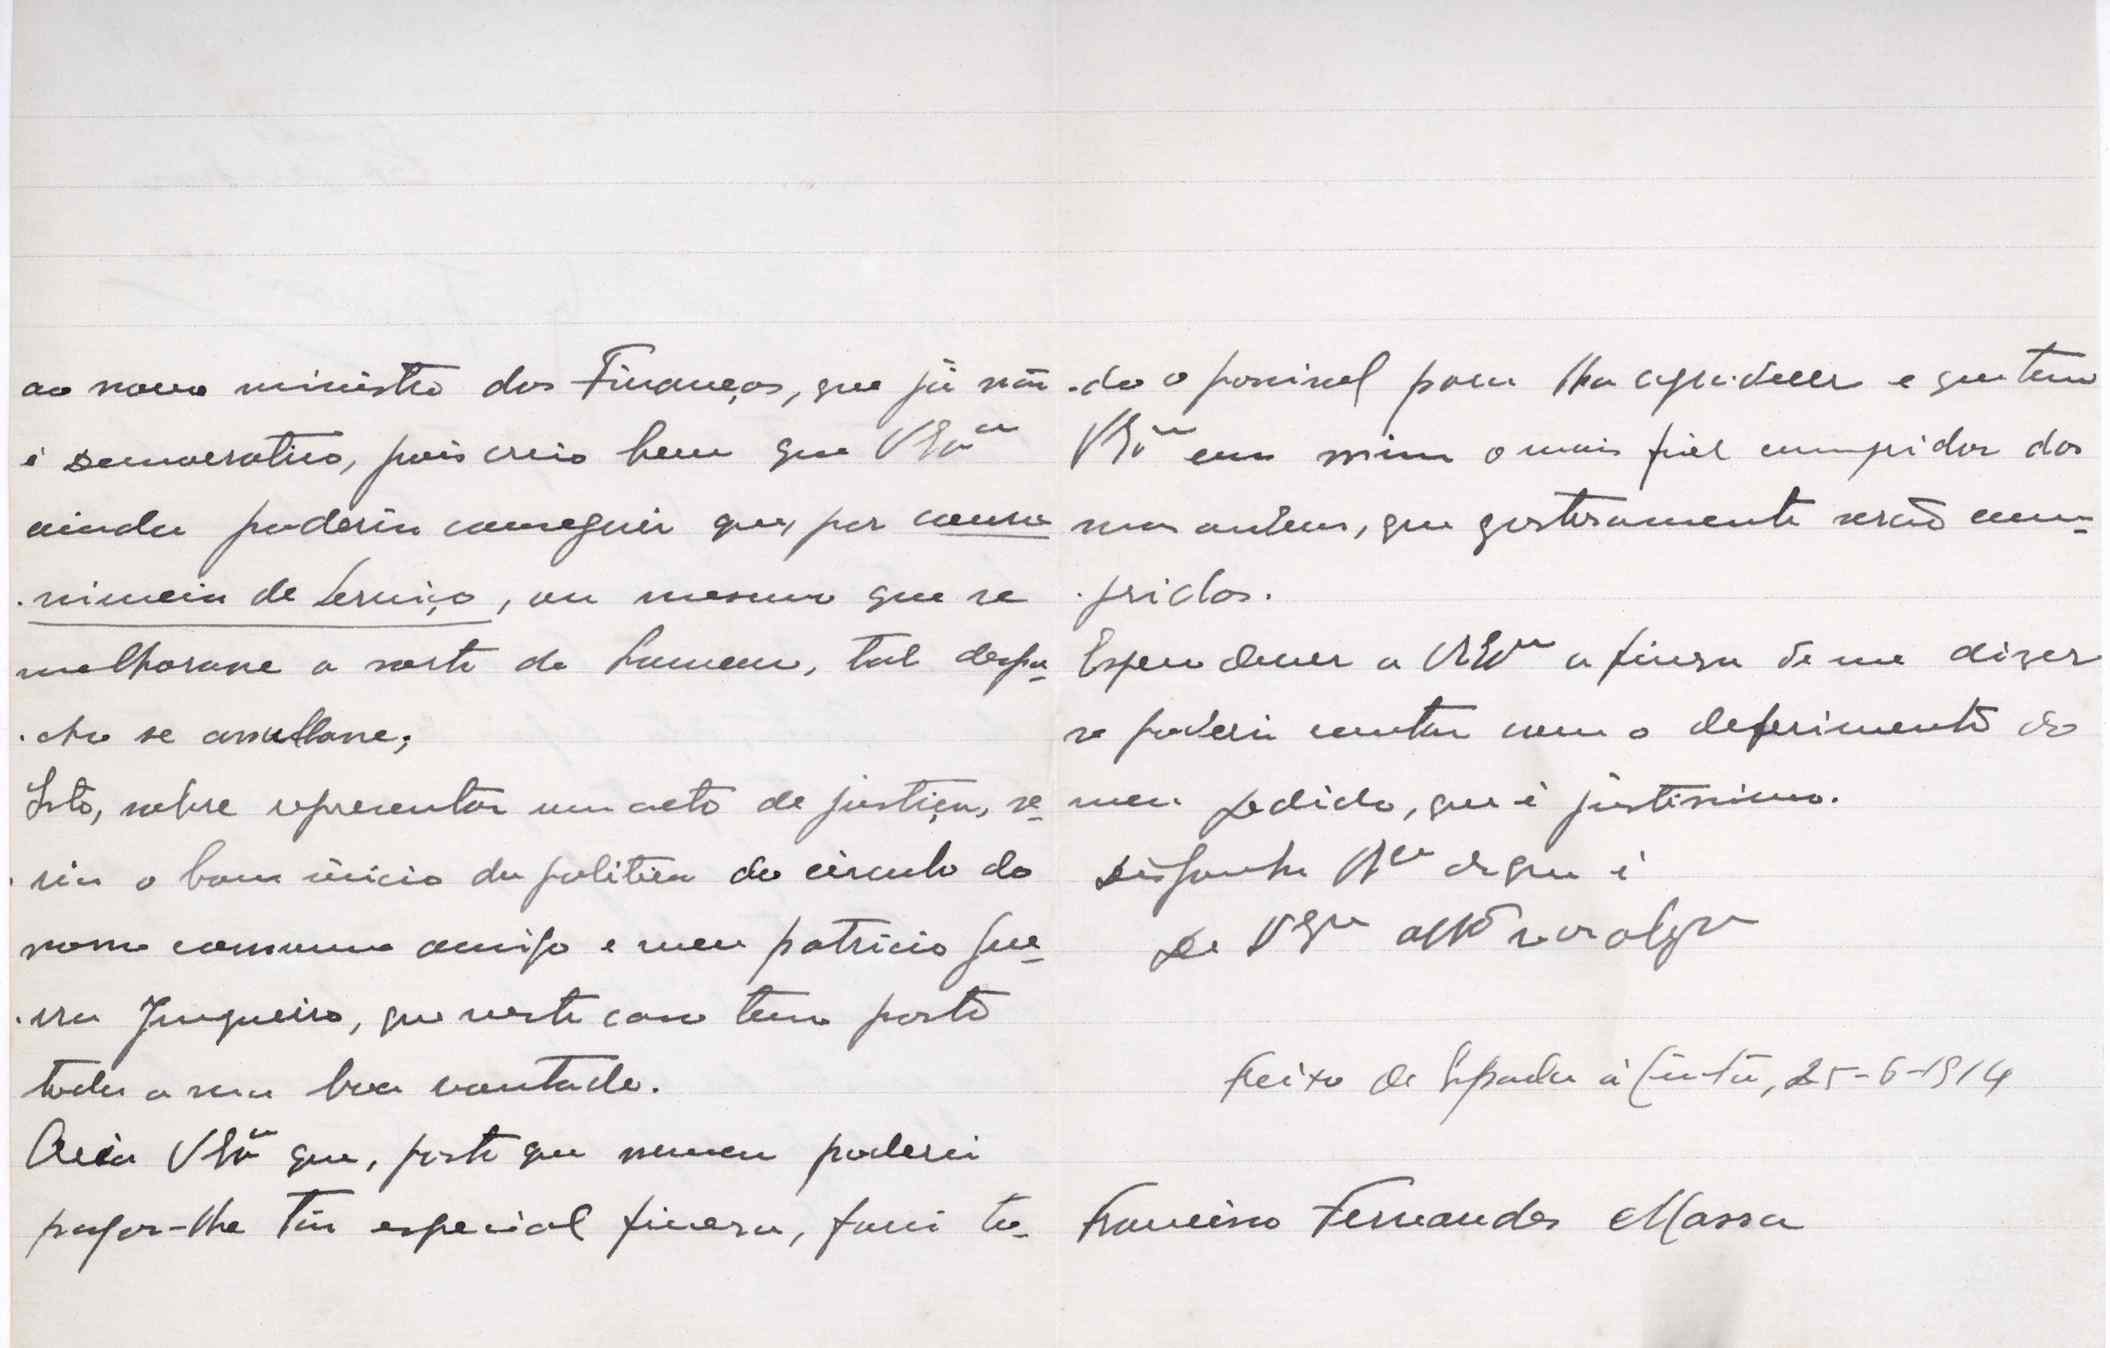 ao novo ministro das Finanças, que já não
é democratico, pois creio bem que V Exª
ainda poderia conseguir que, por conve-
-niencia de serviço, ou mesmo que se
melhorasse a sorte do homem, tal despa-
-cho se anullasse;
Isto, sobre representar um acto de justiça, se-
-ria o bom inicio da politica do circulo do
nosso commum amigo e meu patricio Gue-
-rra Junqueiro, que neste caso tem posto
toda a sua boa vontade.
Creia V Exª que, posto que nunca poderei
pagar-lhe tão especial fineza, farei tu-
-do o possivel para lha agradecer e que tem
V Exª em mim o mais fiel cumpridor das
suas ordens, que gostosamente serão cum-
-pridas.
Espero dever a V Exª a fineza de me dizer
se poderei contar com o deferimento do
meu pedido, que é justissimo.
Disponha Vª de quem é
De V Exª attº vor obgº
Freixo de Espada á Cinta, 25-6-1914
Francisco Fernandes Massa